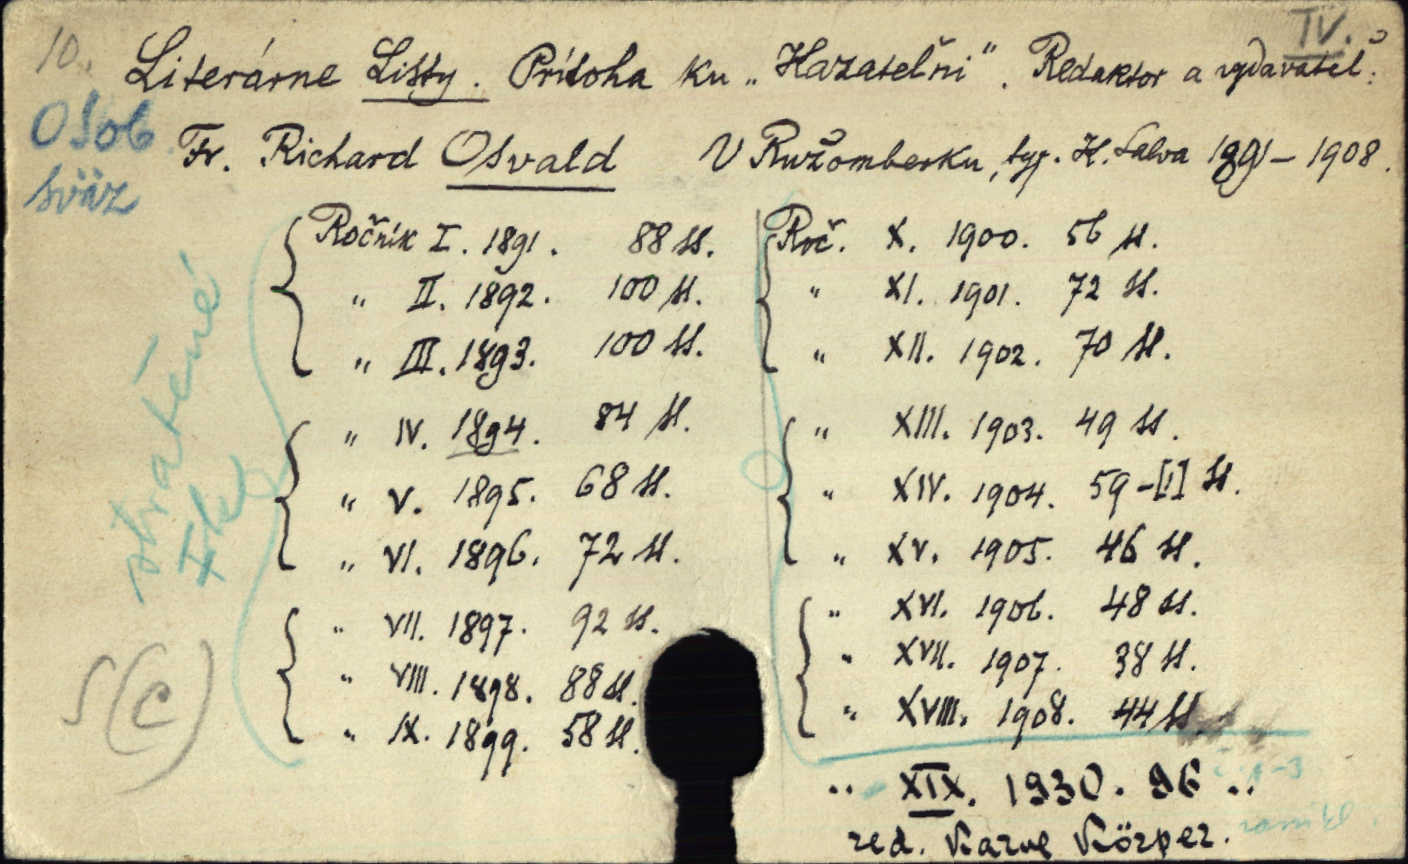 10.
IV.
Literárne Listy. Príloha ku „Kazateľni“. Redaktor a vydavateľ:
Osob
sväz
Fr. Richard Osvald V Ružomberku, typ. K. Salva 1891–1908.
Ročník I. 1891. 88 st.
„ II. 1892. 100 st.
„ III. 1893. 100 st.
„ IV. 1894. 84 st.
„ V. 1895. 68 st.
„ VI. 1896. 72 st.
„ VII. 1897. 92 st.
„ VIII. 1898. 88 st.
„ IX. 1899. 58 st.
Roč. X. 1900. 56 st.
„ XI. 1901. 72 st.
„ XII. 1902. 70 st.
„ XIII. 1903. 49 st.
„ XIV. 1904. 59-[1] st.
„ XV. 1905. 46 st.
„ XVI. 1906. 48 st.
„ XVII. 1907. 38 st.
„ XVIII. 1908. 44 st.
„ XIX. 1930. 96 „
red. Karol Körper.
stratené
S (C)